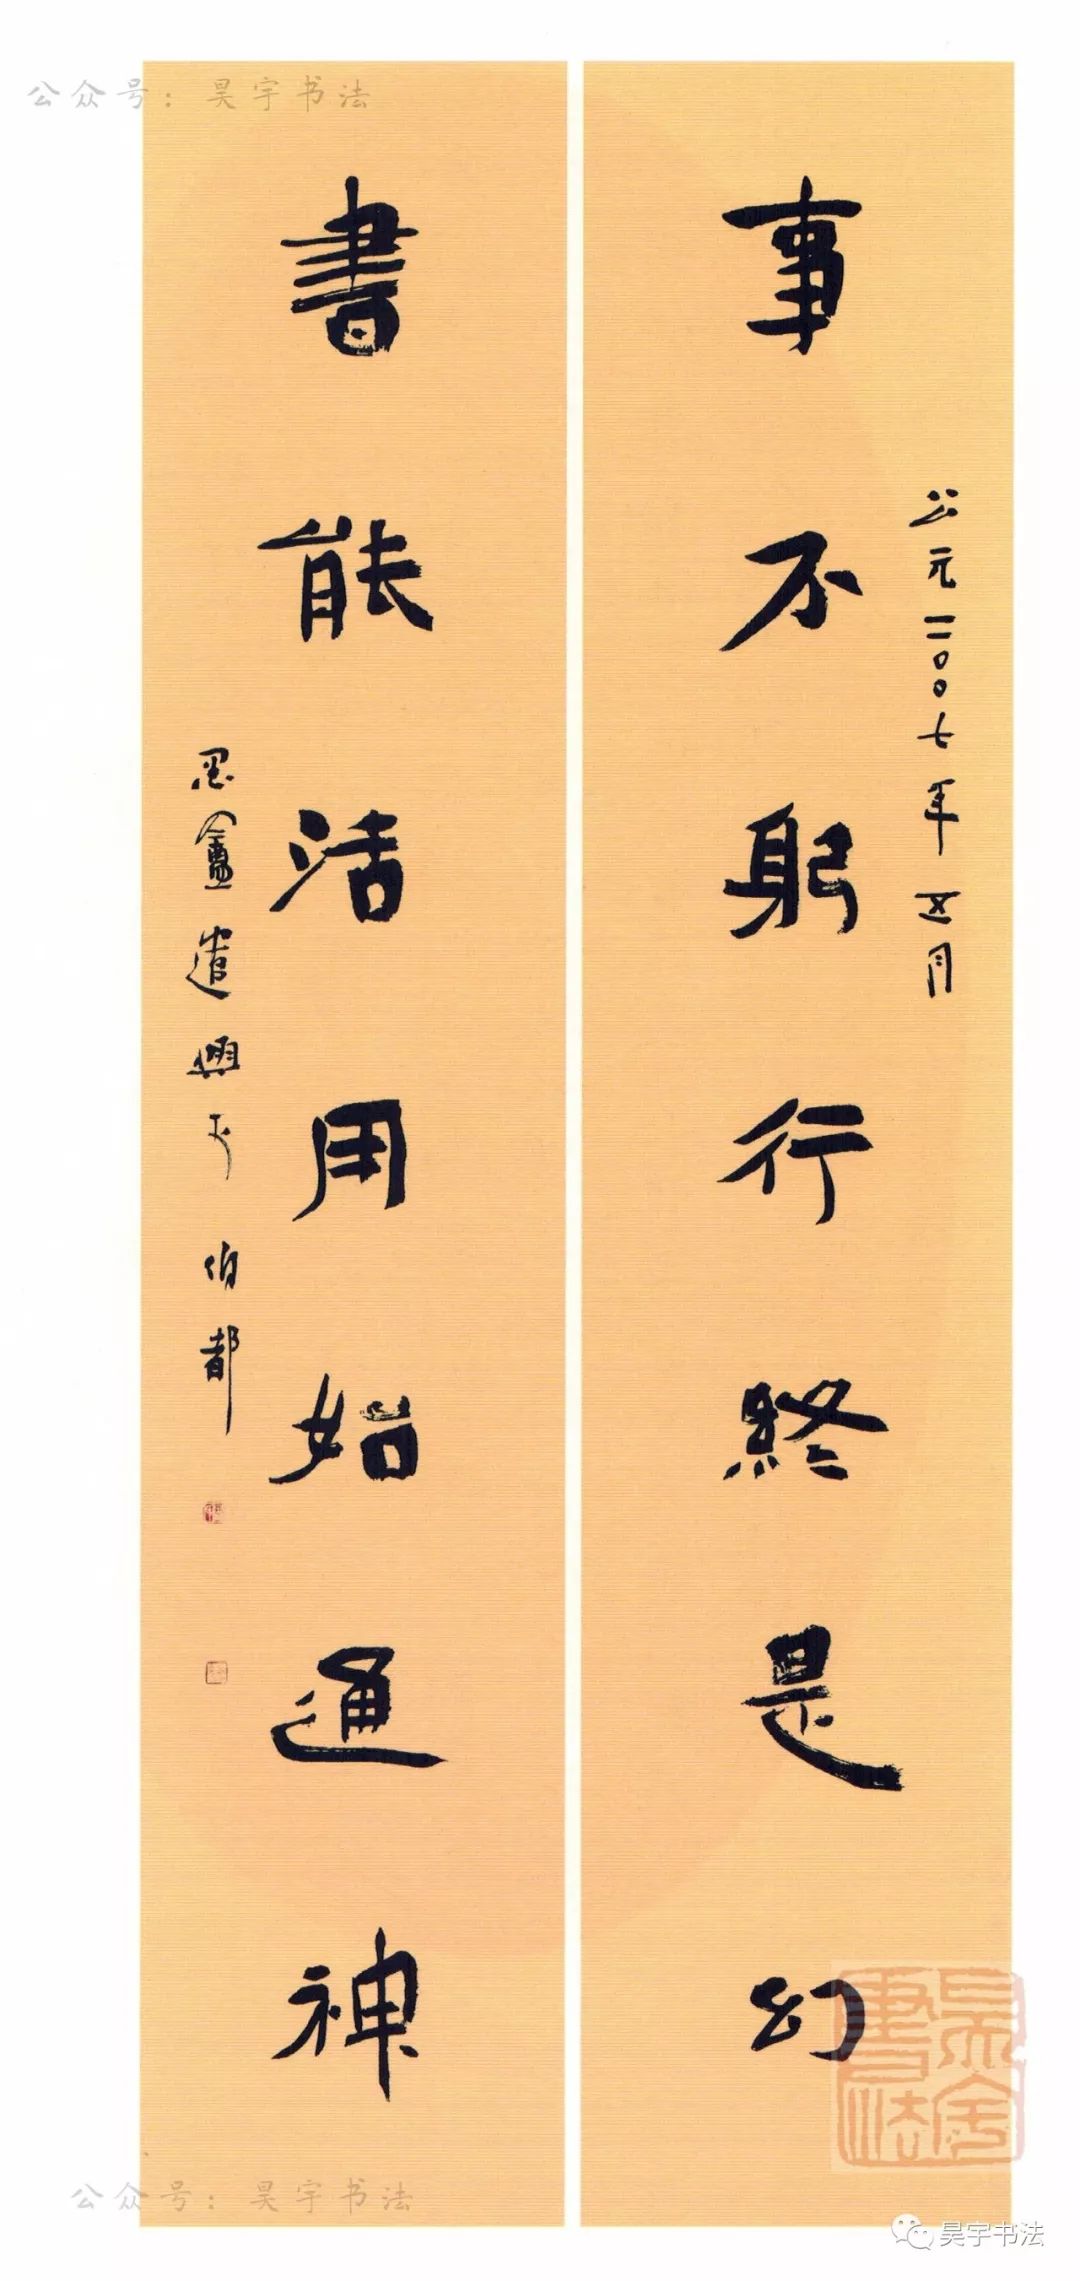 公众号：昊宇书法
公元二〇〇七年五月
事不躬行終是幻
書能活用始通神
盦遣興 伯都
昊宇書法
公众号：昊宇书法
昊宇书法